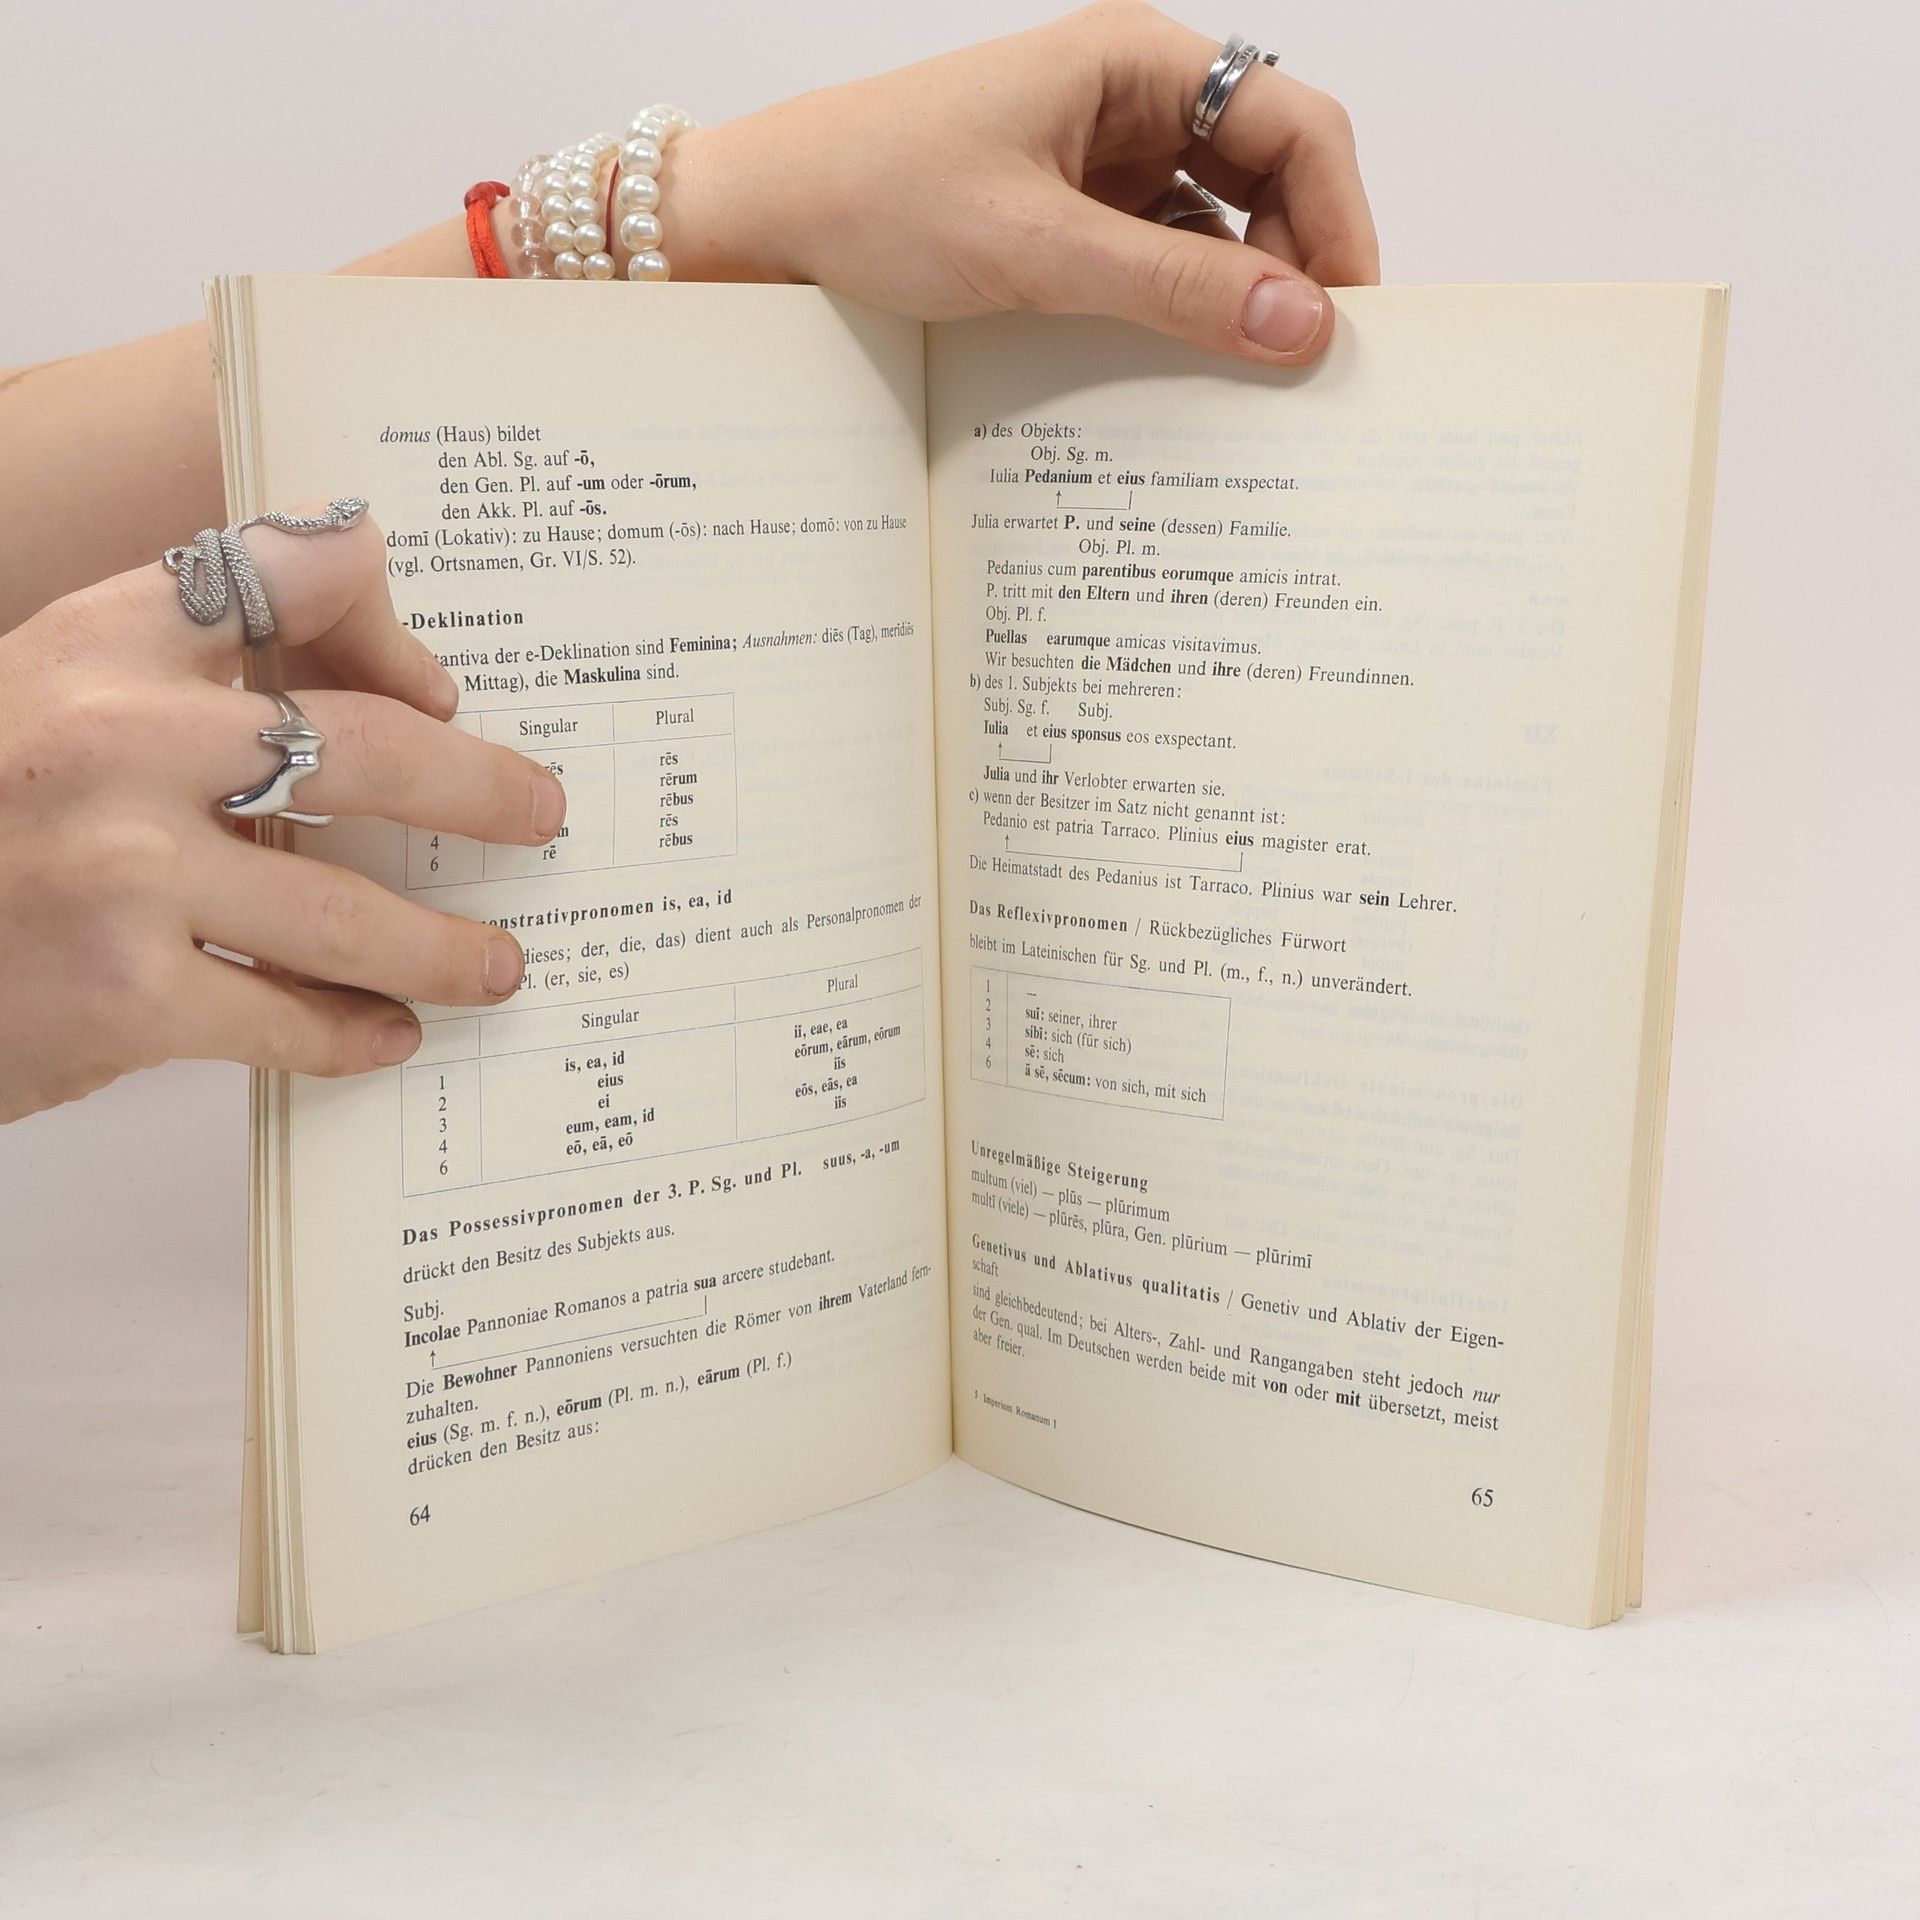 domus (Haus) bildet
den Abl. Sg. auf -ō,
den Gen. Pl. auf -um oder -ōrum,
den Akk. Pl. auf -ōs.
domī (Lokativ): zu Hause; domum (-ōs): nach Hause; domō: von zu Hause
(vgl. Ortsnamen, Gr. VI/S. 52).
-Deklination
tantiva der e-Deklination sind Feminina; Ausnahmen: diēs (Tag), merīdiēs
Mittag), die Maskulina sind.
Singular Plural
rēs rēs
rērum
rēbus
rēs
4 rēbus
6 rē
monstrativpronomen is, ea, id
dieses; der, die, das) dient auch als Personalpronomen der
Pl. (er, sie, es)
Singular Plural
1 is, ea, id iī, eae, ea
2 eius eōrum, eārum, eōrum
3 ei iīs
4 eum, eam, id eōs, eās, ea
6 eō, eā, eō iīs
Das Possessivpronomen der 3. P. Sg. und Pl. suus, -a, -um
drückt den Besitz des Subjekts aus.
Subj.
Incolae Pannoniae Romanos a patria sua arcere studebant.
Die Bewohner Pannoniens versuchten die Römer von ihrem Vaterland fern-
zuhalten.
eius (Sg. m. f. n.), eōrum (Pl. m. n.), eārum (Pl. f.)
drücken den Besitz aus:
64
a) des Objekts:
Obj. Sg. m.
Iulia Pedanium et eius familiam exspectat.
Julia erwartet P. und seine (dessen) Familie.
Obj. Pl. m.
Pedanius cum parentibus eorumque amicis intrat.
P. tritt mit den Eltern und ihren (deren) Freunden ein.
Obj. Pl. f.
Puellas earumque amicas visitavimus.
Wir besuchten die Mädchen und ihre (deren) Freundinnen.
b) des 1. Subjekts bei mehreren:
Subj. Sg. f. Subj.
Iulia et eius sponsus eos exspectant.
Julia und ihr Verlobter erwarten sie.
c) wenn der Besitzer im Satz nicht genannt ist:
Pedanio est patria Tarraco. Plinius eius magister erat.
Die Heimatstadt des Pedanius ist Tarraco. Plinius war sein Lehrer.
Das Reflexivpronomen / Rückbezügliches Fürwort
bleibt im Lateinischen für Sg. und Pl. (m., f., n.) unverändert.
1 —
2 suī: seiner, ihrer
3 sibī: sich (für sich)
4 sē: sich
6 ā sē, sēcum: von sich, mit sich
Unregelmäßige Steigerung
multum (viel) — plūs — plūrimum
multī (viele) — plūrēs, plūra, Gen. plūrium — plūrimī
Genetivus und Ablativus qualitatis / Genetiv und Ablativ der Eigen-
schaft
sind gleichbedeutend; bei Alters-, Zahl- und Rangangaben steht jedoch nur
der Gen. qual. Im Deutschen werden beide mit von oder mit übersetzt, meist
aber freier.
5 Imperium Romanum I
65